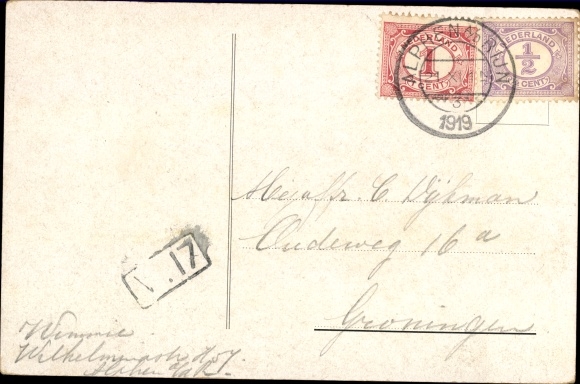 NEDERLAND
1
CENT
NEDERLAND
1/2
CENT
ALPHEN A/D RIJN
3
1919
Mejuffr. C. Dijkman
Oudeweg 16 a
Groningen
V.17
Wimmie
Alphen a/d R.